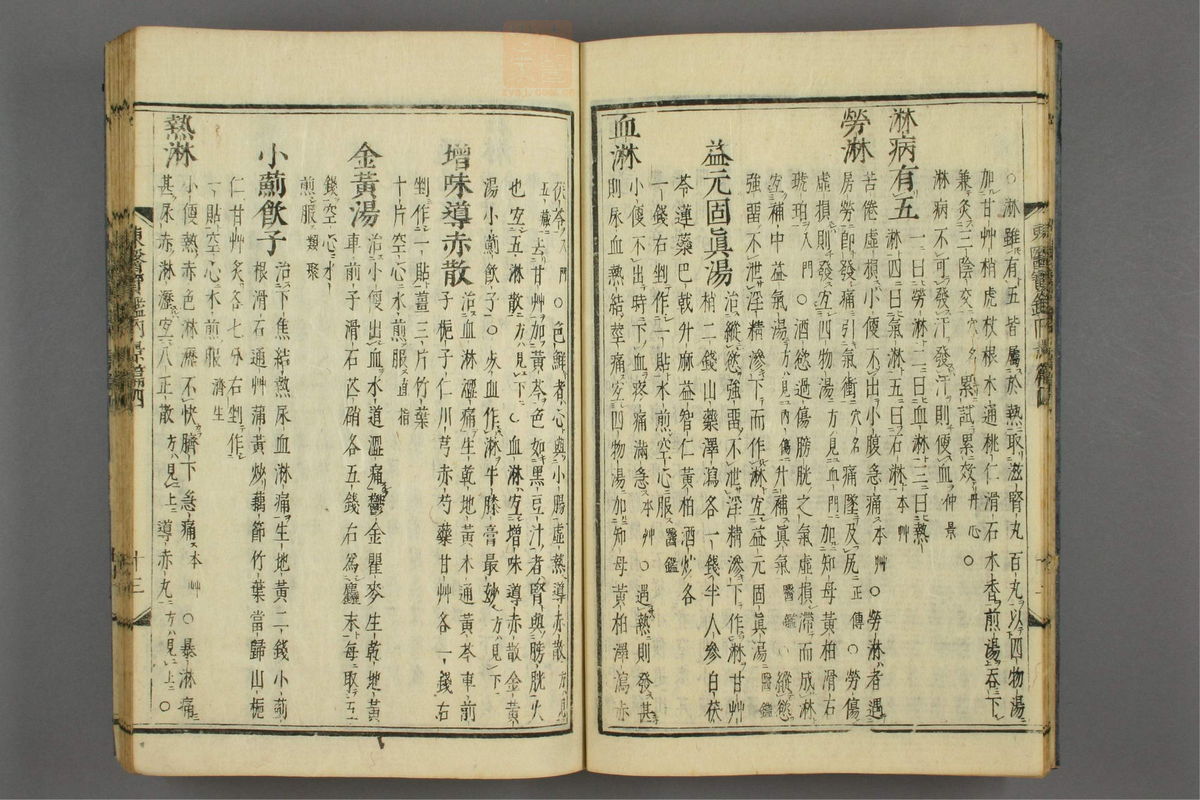 ○淋雖有五皆屬於熱取滋腎丸百丸以四物湯
加甘艸梢虎杖根木通桃仁滑石木香煎湯吞下
兼灸三陰交穴名累試累效丹心○
淋病不可發汗發汗則便血仲景
淋病有五
一曰勞淋二曰血淋三曰熱
淋四曰氣淋五曰石淋本艸
勞淋
苦倦虛損小便不出小腹急痛本艸○勞淋者遇
房勞卽發痛引氣衝穴名痛墜及尻正傳○勞傷
虛損則發宜四物湯方見血門加知母黃柏滑石
琥珀入門○酒慾過傷膀胱之氣虛損滯而成淋
宜補中益氣湯方見內傷升補眞氣醫鑑○縱慾
強留不泄淫精滲下而作淋宜益元固眞湯醫鑑
益元固眞湯
治縱慾強留不泄淫精滲下作淋甘艸
梢二錢山藥澤瀉各一錢半人參白茯
苓蓮蘂巴戟升麻益智仁黃柏酒炒各
一錢右剉作一貼水煎空心服醫鑑
血淋
小便不出時下血疼痛滿急本艸○遇熱則發甚
則尿血熱結莖痛宜四物湯加知母黃柏澤瀉赤
茯苓入門○色鮮者心與小腸虛熱導赤散方見
五藏去甘艸加黃芩色如黑豆汁者腎與膀胱火
也宜五淋散方見下○血淋宜增味導赤散金黃
湯小薊飮子○死血作淋牛膝膏最妙方見下
增味導赤散
治血淋澁痛生乾地黃木通黃芩車前
子梔子仁川芎赤芍藥甘艸各一錢右
剉作一貼薑三片竹葉
十片空心水煎服直指
金黃湯
治小便出血水道澁痛鬱金瞿麥生乾地黃
車前子滑石芒硝各五錢右爲麤末每取五
錢空心水
煎服類聚
小薊飮子
治下焦結熱尿血淋痛生地黃二錢小薊
根滑石通艸蒲黃炒藕節竹葉當歸山梔
仁甘艸灸各七分右剉作
一貼空心水煎服濟生
熱淋
小便熱赤色淋瀝不快臍下急痛本艸○暴淋痛
甚尿赤淋瀝宜八正散方見上導赤丸方見上○
東醫寶鑑內景篇四
十三